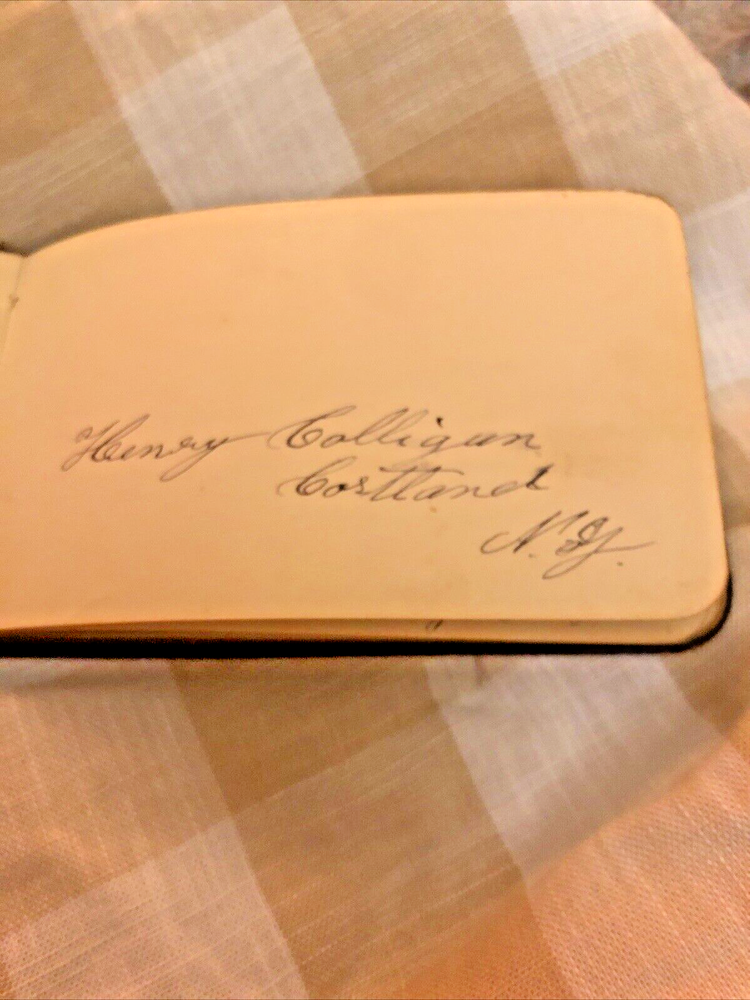 Henry Colligan
Cortland
N.Y.